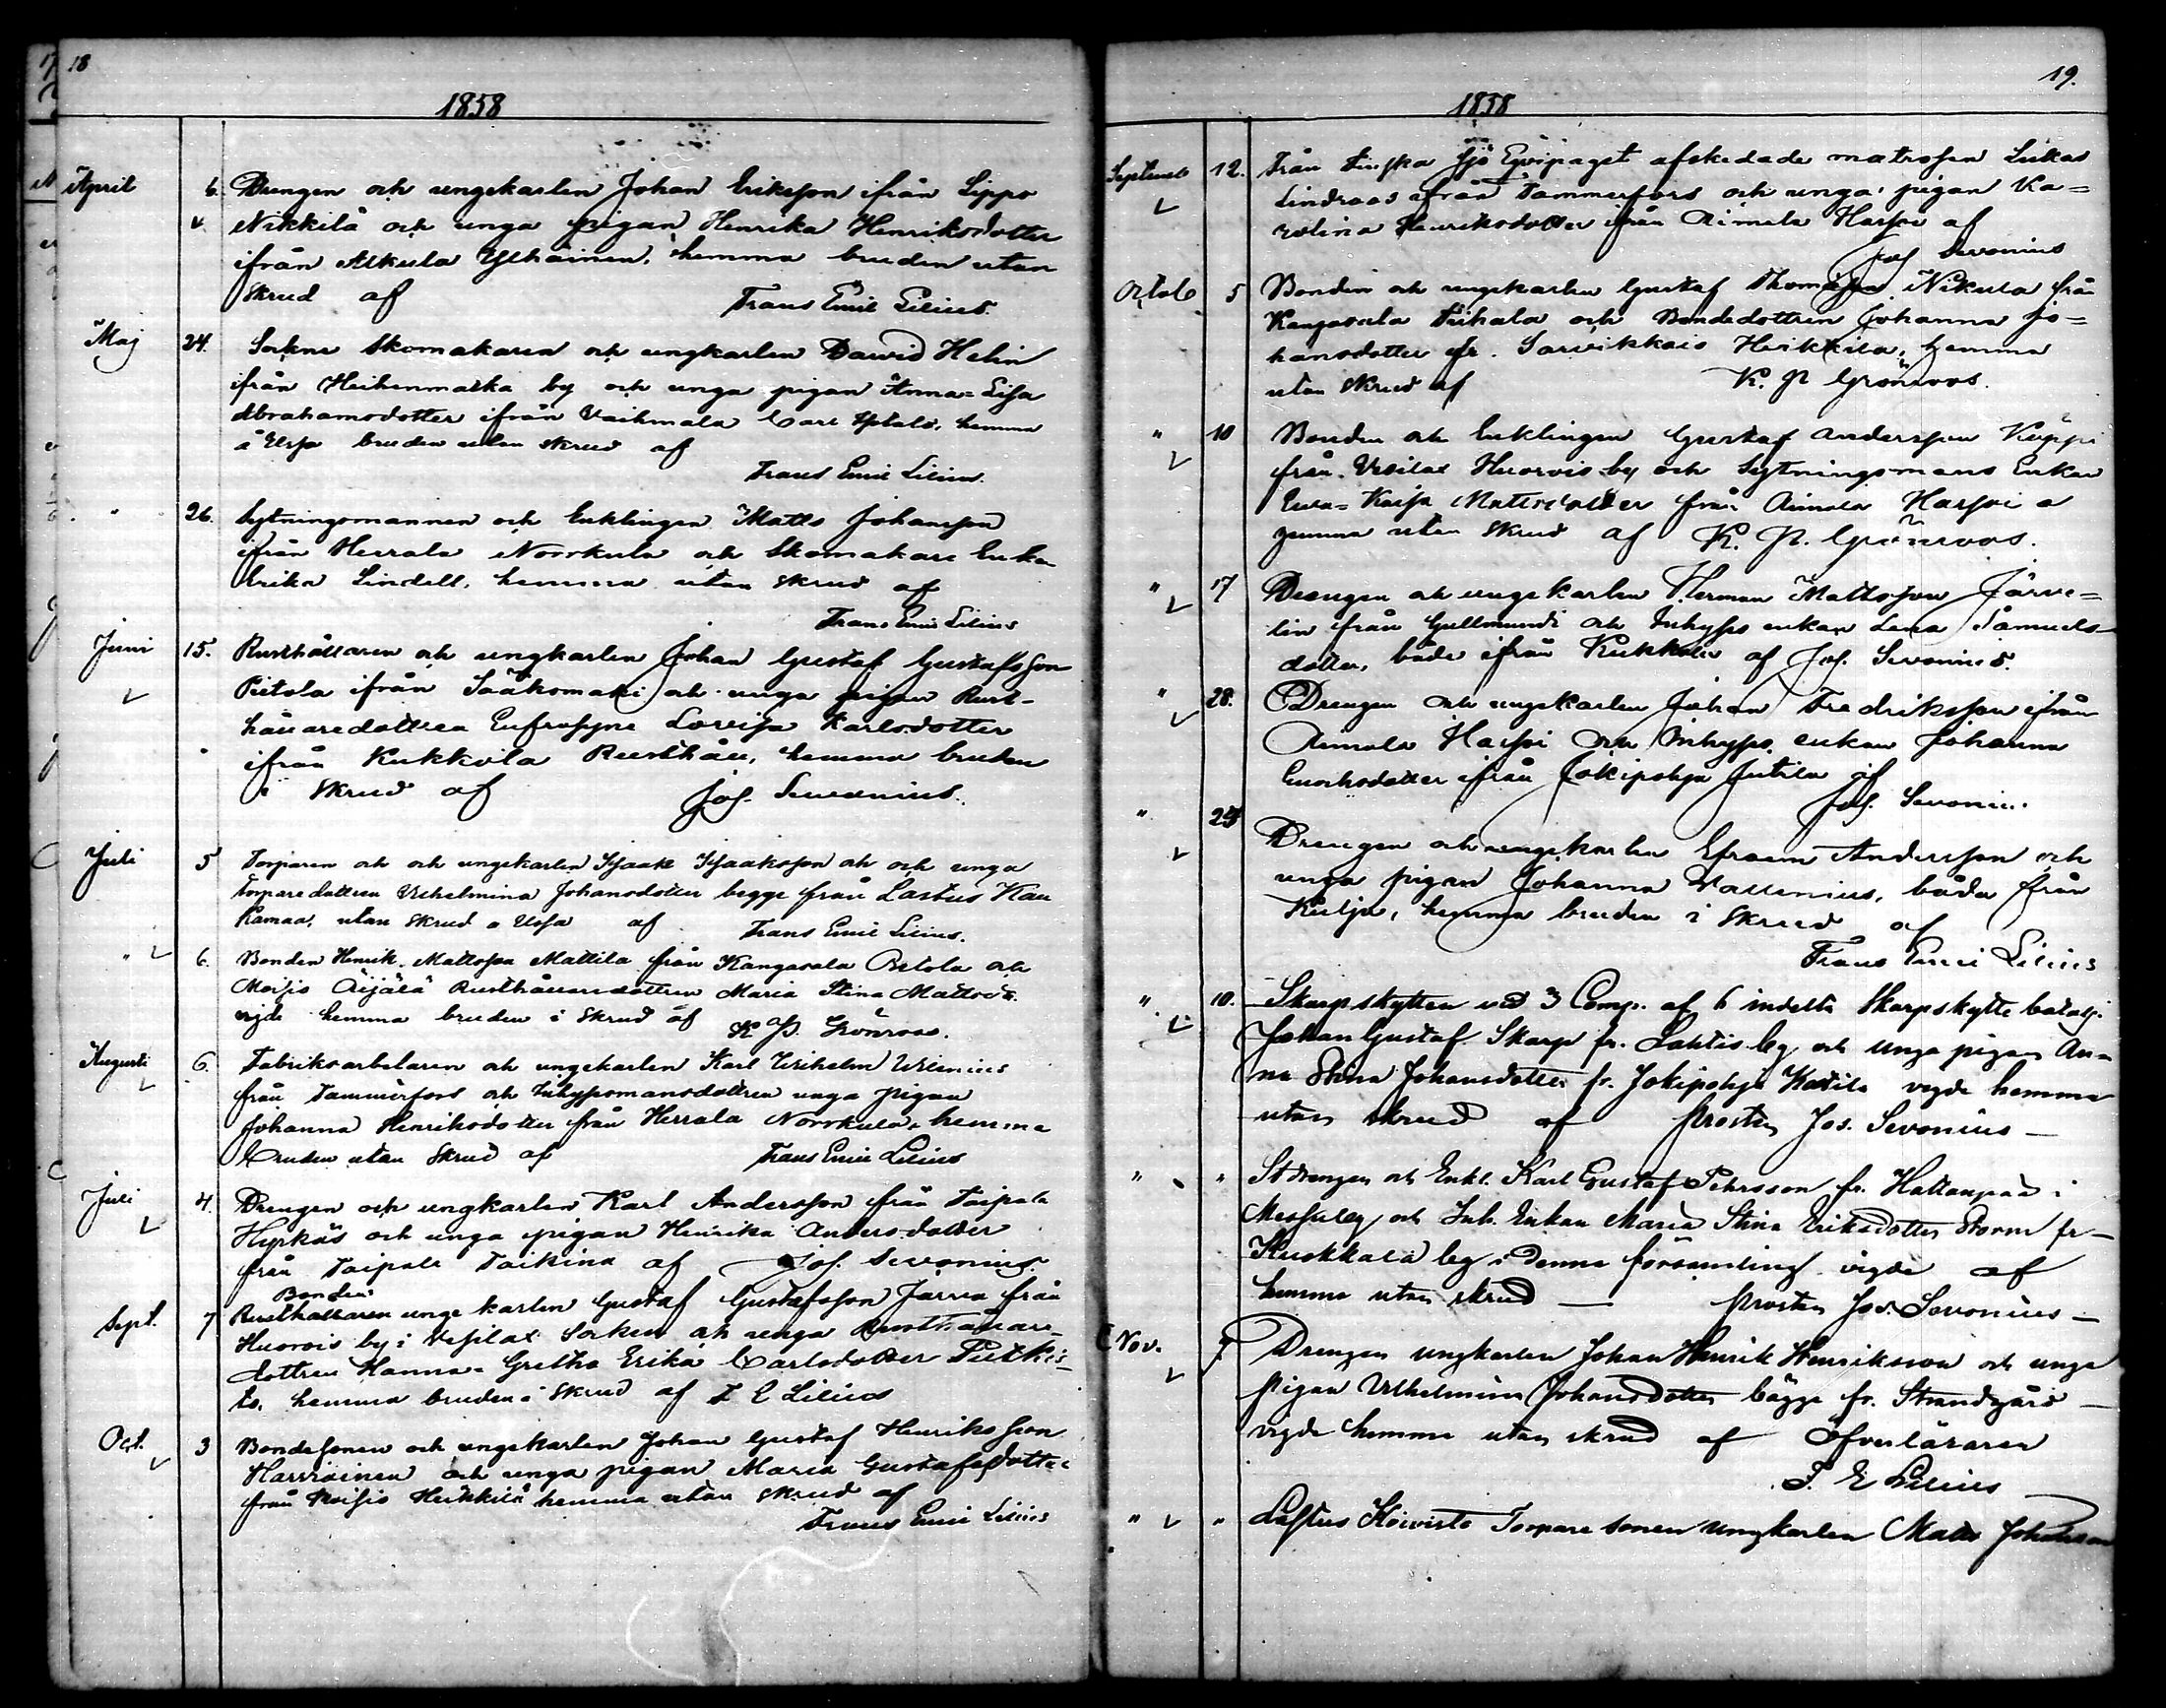 18
1858
April 6. Drengen och ungekarlen Johan Eriksson ifrån Lippo
Nikkilä och unga pigan Henrika Henriksdotter
ifrån Alkula Ylhäinen, hemma bruden utan
Skrud af Frans Emil Lilius.
Maj 24. Sockne Skomakaren och ungkarlen David Helin
ifrån by och unga pigan Anna-Lisa
Abrahamsdotter ifrån hemma
bruden utan skrud af
Frans Emil Lilius.
" 26. Sytningsmannen och Enklingen Matts Johansson
ifrån Herrala Norrkula och Skomakare Enkan
Erika Lindell, hemma utan skrud af
Frans Emil Lilius
Juni 15. Rusthållaren och ungkarlen Johan Gustaf Gustafsson
Pietola ifrån Sääksmäki och unga pigan Rust-
hållaredottren Eufrosyne Lovisa Karlsdotter
ifrån Kukkola Rusthåll, hemma bruden
i Skrud af Jos. Sevonius.
Juli 5 Torparen och och ungekarlen Isaak Isaaksson och och unga
torparedottren Vilhelmina Johansdotter begge från Lastus
utan skrud af Frans Emil Lilius.
" 6. Bonden Henrik Mattsson Mattila från Kangasala och
Moisio Äijälä Rusthållaredottren Maria Stina Mattsd.
vigde hemma bruden i Skrud af K. P. Grönroos.
Augusti 6. Fabriksarbetaren och ungekarlen Karl Wilhelm
från Tammerfors och Inhysesmansdottren unga pigan
Johanna Henriksdotter från Herrala Norrkula, hemma
bruden utan Skrud af Frans Emil Lilius
Juli 4. Drengen och ungkarlen Karl Andersson från Taipale
Hyrkäs och unga pigan Henrika Andersdotter
från Taipale Taikina af Jos. Sevonius.
Bonden
Sept. 7 Rusthållaren ungekarlen Gustaf Gustafsson Jarra från
Huovois by i Vesilax Socken och unga Rusthållare-
dottren Hanna-Gretha Erika Carlsdotter
hemma bruden i Skrud af F E Lilius
Oct. 3 Bondesonen och ungekarlen Johan Gustaf Henriksson
och unga pigan Maria Gustafsdotter
från Moisio Heikkilä hemma utan skrud af
Frans Emil Lilius
19.
1858
12. Från Finska Sjö Eqvipaget afskedade matrosen Lukas
Lindroos ifrån Tammerfors och unga pigan Ka-
rolina Henriksdotter ifrån Aimala Harppi af
Jos Sevonius
5 Bonden och ungekarlen Gustaf Thomasson Nikula från
Kangasala och Bondedottren Johanna Jo-
hansdotter fr. Sarvikkais Heikkilä, hemma
utan skrud af K. P. Grönroos.
" 10 Bonden och Enklingen Gustaf Andersson
från Vesilax Huovois by och Sytningsmans Enkan
Eva-Kaisa Mattsdotter från Aimala Harppi
hemma utan skrud af K. P. Grönroos.
" 17 Drengen och ungekarlen Herman Mattsson Järve-
lin från och Inhyses enkan Lena Samuels-
dotter, både ifrån af Jos. Sevonius.
" 28. Drengen och ungekarlen Johan Fredriksson ifrån
Aimala Harppi och Inhyses enkan Johanna
Enochsdotter ifrån Jokipohja Jutila af
Jos. Sevonius.
" Drengen och ungekarlen Efraim Andersson och
unga pigan Johanna Wallenius, båda från
Kulju, hemma bruden i skrud af
Frans Emil Lilius
" 10. Skarpskytten vid 3 Comp. af 6 indelta Skarpskytte batalj.
Johan Gustaf Skarp fr. Lahtis by och Unga pigan An-
na Stina Johansdotter fr. Jokipohja vigde hemma
utan skrud af Prosten Jos. Sevonius
" " St drengen och Enkl. Karl Gustaf Pehrsson fr. Hattanpää i
Messuby och Inh. Enkan Maria Stina Eriksdotter Storm fr
Kuokkala by i Denna församling vigde af
hemma utan skrud Prosten Jos. Sevonius
Nov. 7 Drengen ungkarlen Johan Henrik Henriksson och unga
pigan Vilhelmina Johansdotter bägge fr. Strandgård
vigde hemma utan skrud af Öfverläraren
F. E Lilius
" " Lastus Koivisto Torpare sonen Ungkarlen Matts Johansson